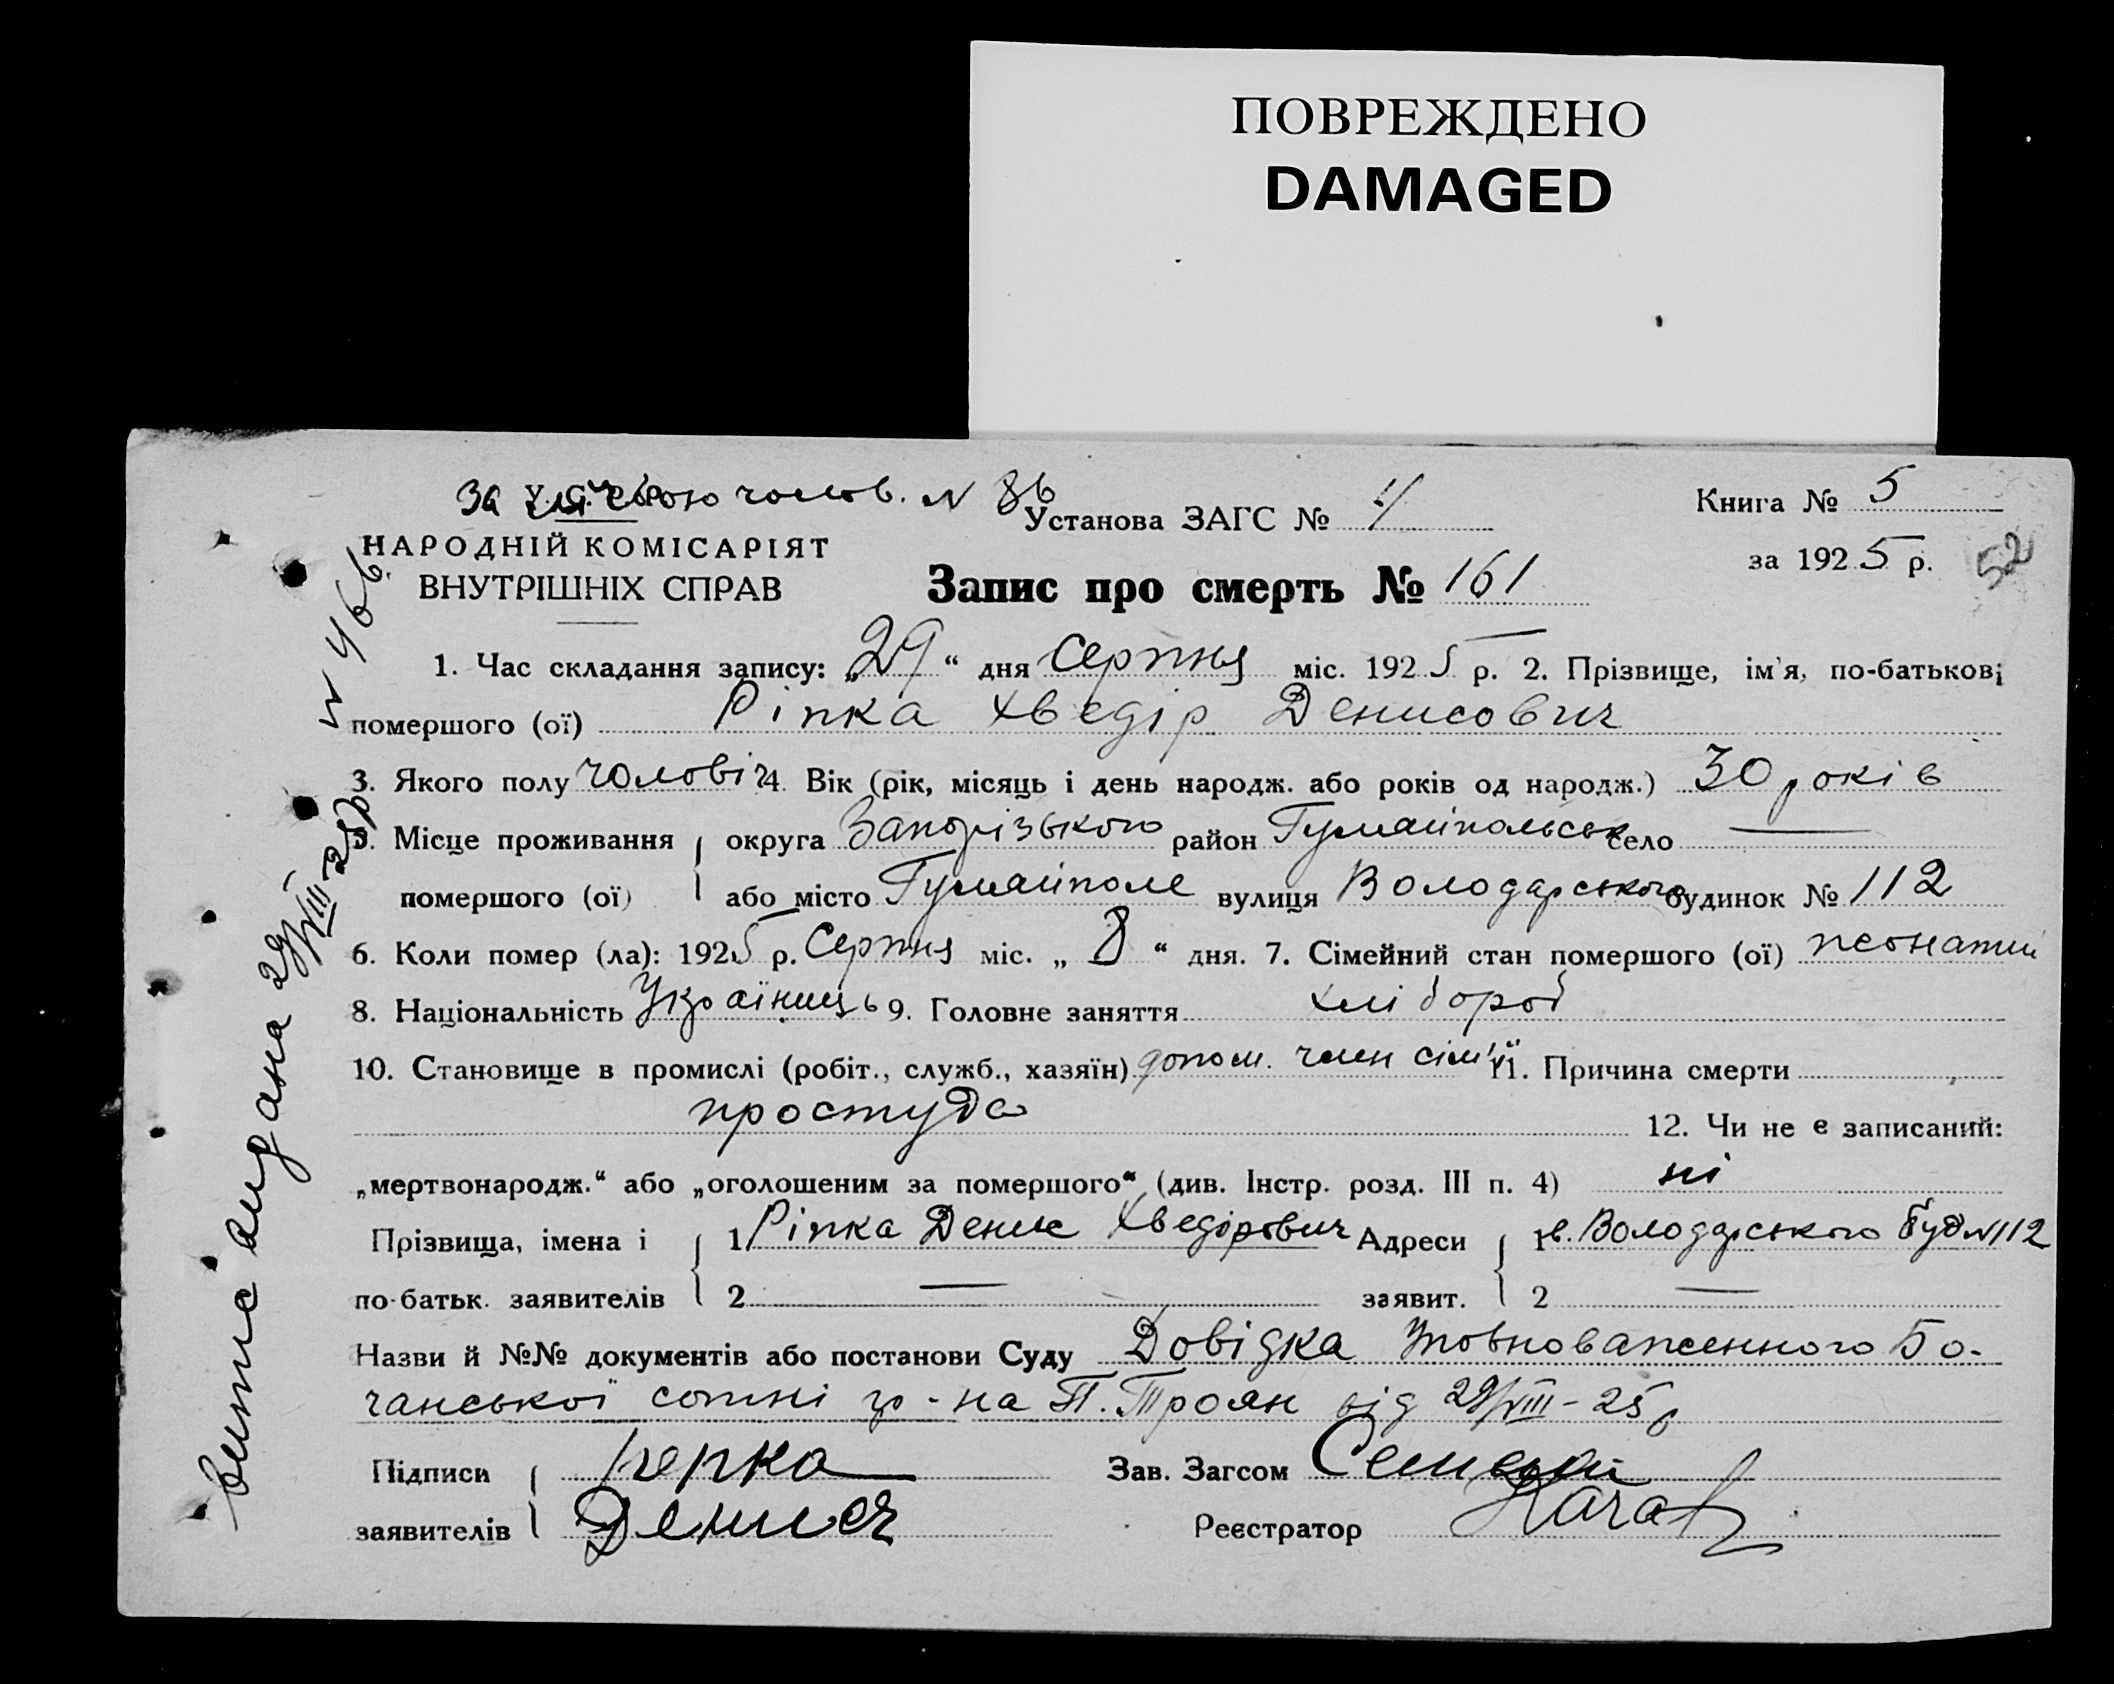 ПОВРЕЖДЕНО
DAMAGED
За У.С.Р.Р. статтею чолов. N 86
Установа ЗАГС № 4
Книга № 5
НАРОДНІЙ КОМІСАРІЯТ
ВНУТРІШНІХ СПРАВ
за 1925 р.
52
Запис про смерть № 161
1. Час складання запису: „29“ дня Серпня міс. 1925 р. 2. Прізвище, ім'я, по-батькові
помершого (ої) Ріпка Хведір Денисович
3. Якого полу чоловіч 4. Вік (рік, місяць і день народж. або років од народж.) 30 років
5. Місце проживання округа Запорізького район Гуляйпольськ село —
помершого (ої) або місто Гуляйполе вулиця Володарського будинок № 112
6. Коли помер (ла): 1925 р. Серпня міс. „8“ дня. 7. Сімейний стан помершого (ої) неонатий
8. Національність Українець 9. Головне заняття хлібороб
10. Становище в промислі (робіт., служб., хазяїн) допом. член сім'ї 11. Причина смерти
простуда 12. Чи не є записаний:
„мертвонародж.“ або „оголошеним за помершого“ (див. Інстр. розд. III п. 4) ні
Прізвища, імена і 1 Ріпка Денис Хведірович Адреси 1 в. Володарського буд N 112
по-батьк. заявителів 2 — заявит. 2 —
Назви й №№ документів або постанови Суду Довідка Уповноваженного Бо-
чанської сотні гр-на П. Троян від 29/VIII-25 р
Підписи репка Зав. Загсом
заявителів Денис Реєстратор
Випис видана 29/VIII-25р N 466